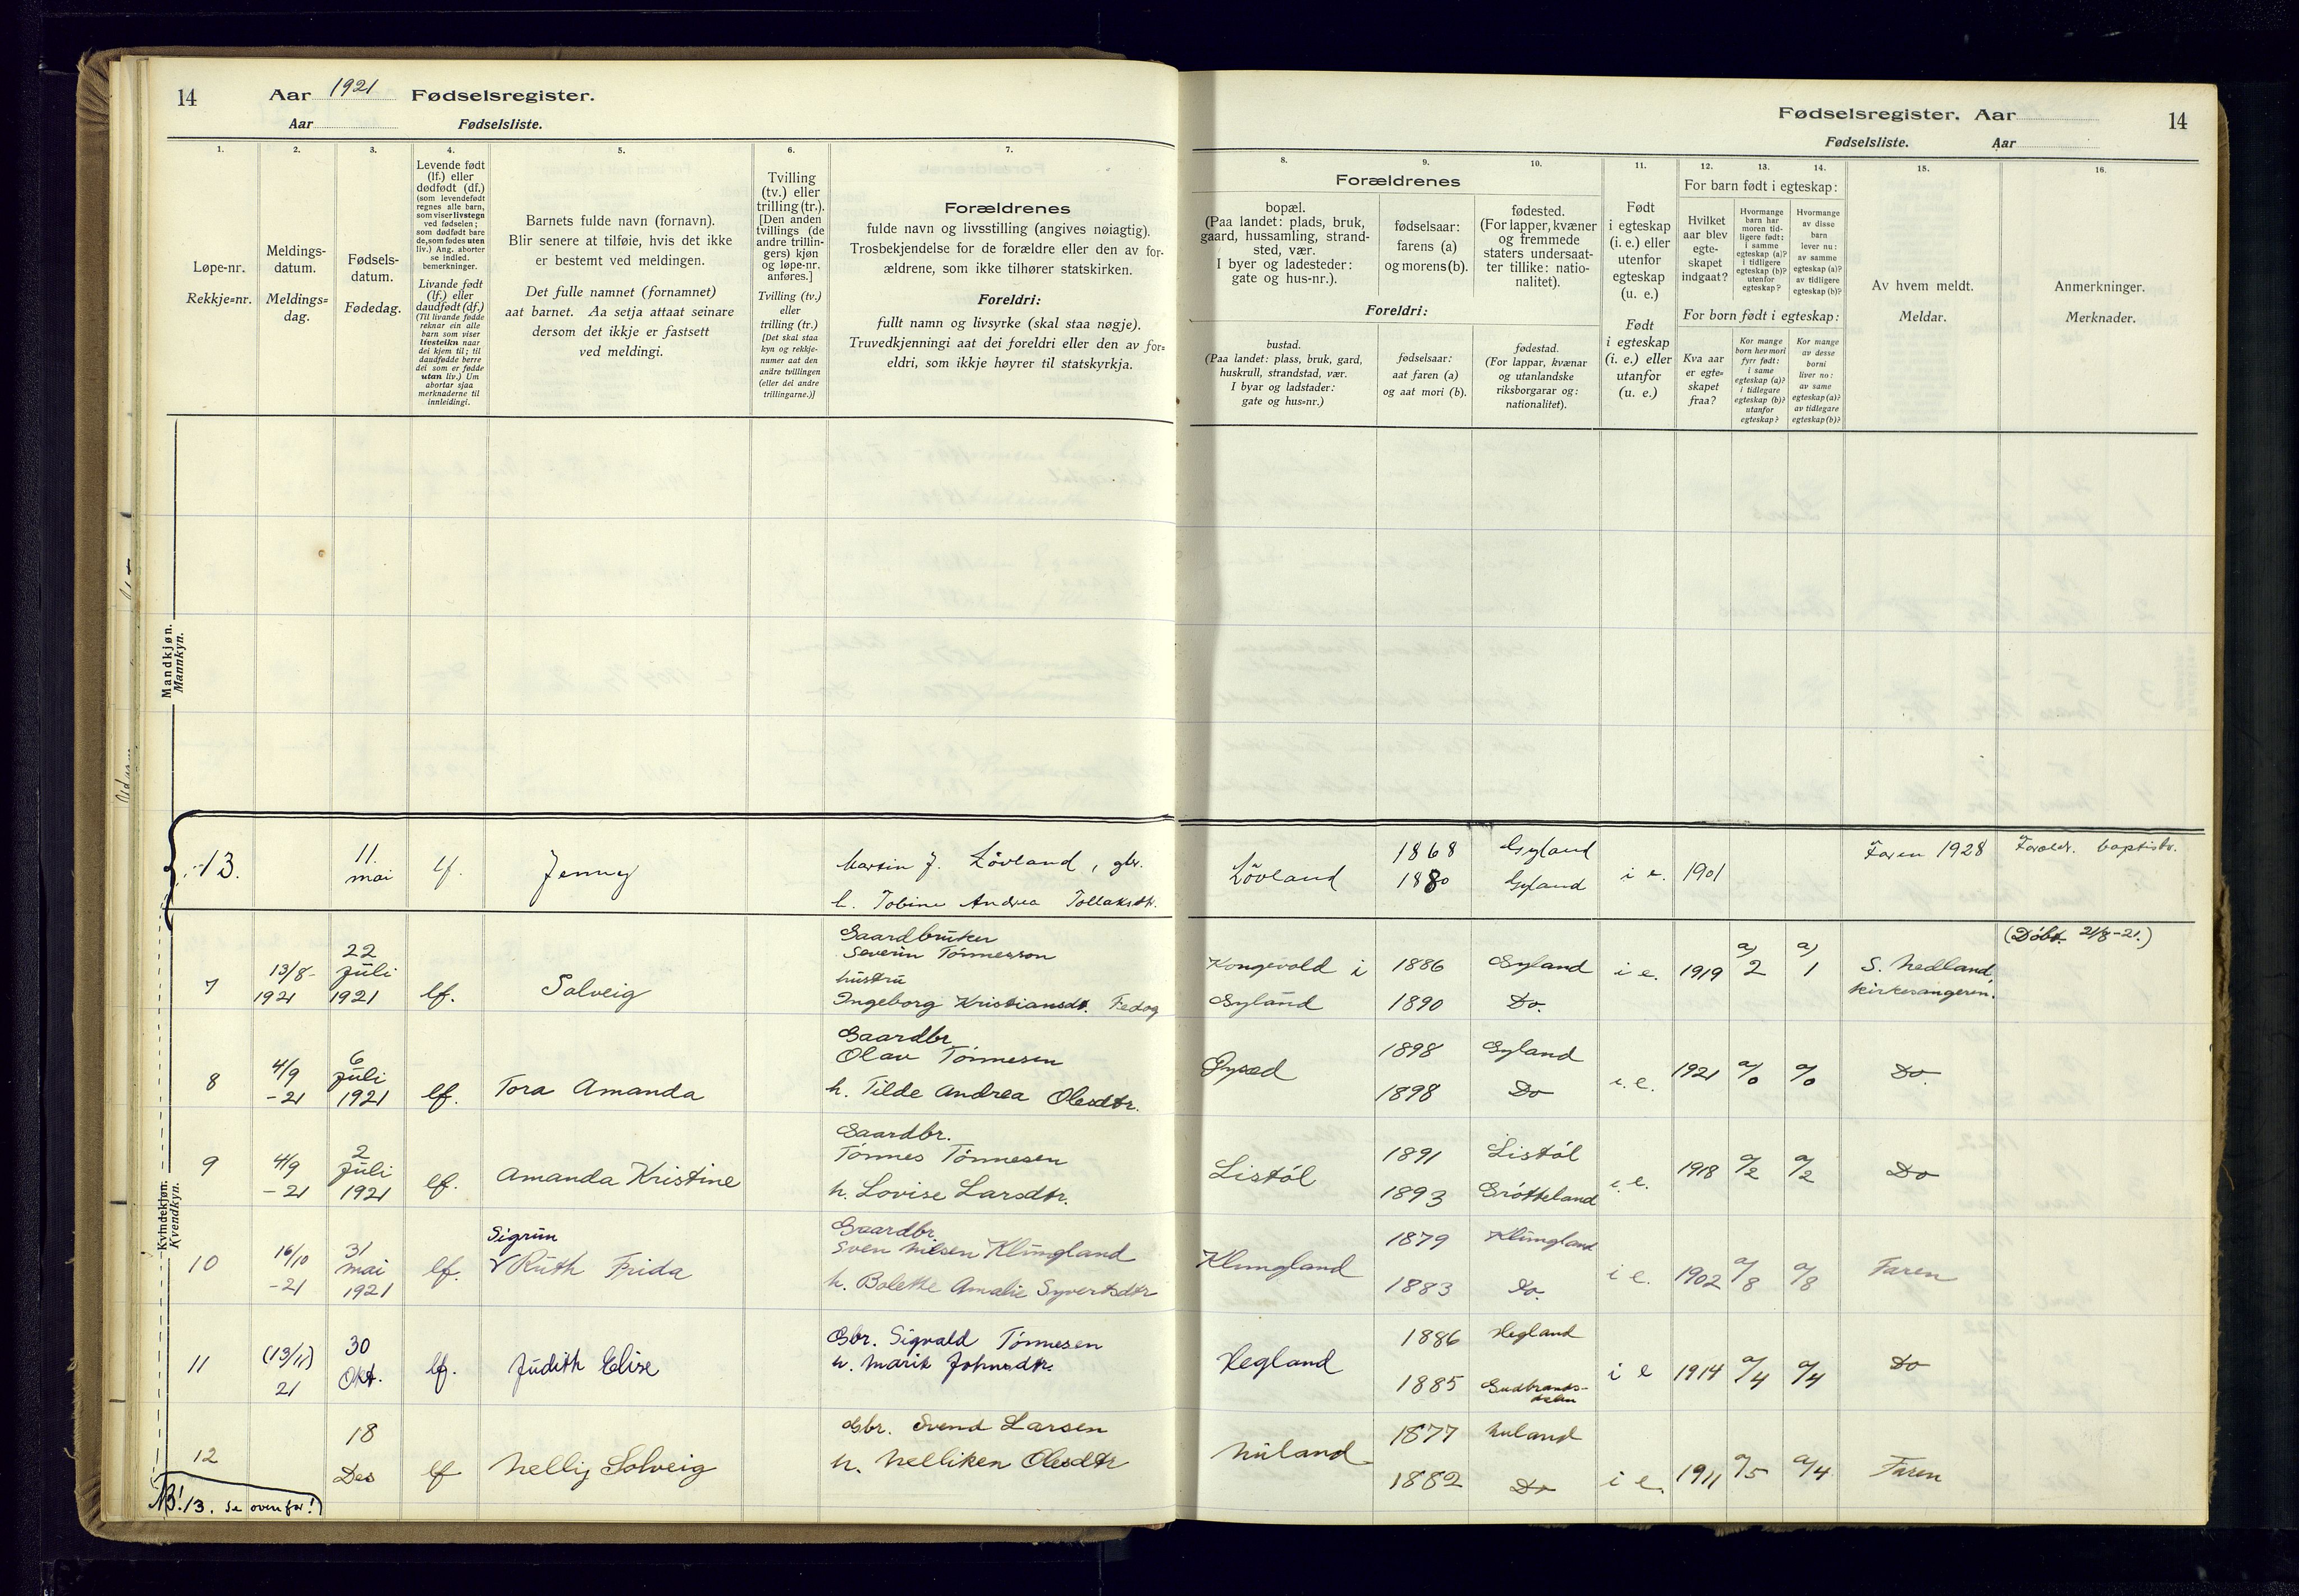 14 Aar 1921 Fødselsregister.
Aar Fødselsliste.
1.
2.
3.
4.
5.
6.
7.
Løpe-nr.
Rekkje=nr.
Meldings-
datum.
Meldings=
dag.
Fødsels-
datum.
Fødedag.
Levende født
(lf.) eller
dødfødt (df.)
(som levendefødt
regnes alle barn,
som viser livstegn
ved fødselen;
som dødfødt bare
de, som fødes uten
liv.) Ang. aborter
se indled.
bemerkninger.
Livande født
(lf.) eller
daudfødt (df.)
(Til livande fødde
reknar ein alle
barn som viser
livsteikn naar
dei kjem til; til
daudfødde berre
dei som er fødde
utan liv.) Um
abortar sjaa
merknaderne til
innleidingi.
Barnets fulde navn (fornavn).
Blir senere at tilføie, hvis det ikke
er bestemt ved meldingen.
Det fulle namnet (fornamnet)
aat barnet. Aa setja attaat seinare
dersom det ikkje er fastsett
ved meldingi.
Tvilling
(tv.) eller
trilling (tr.).
[Den anden
tvillings (de
andre trillin-
gers) kjøn
og løpe-nr.
anføres.]
Tvilling (tv.)
eller
trilling (tr.)
[Det skal staa
kyn og rekkje-
numer aat den
andre tvillingen
(eller dei andre
trillingarne.)]
Forældrenes
fulde navn og livsstilling (angives nøiagtig).
Trosbekjendelse for de forældre eller den av for-
ældrene, som ikke tilhører statskirken.
Foreldri:
fullt namn og livsyrke (skal staa nøgje).
Truvedkjenningi aat dei foreldri eller den av for=
eldri, som ikkje høyrer til statskyrkja.
Fødselsregister. Aar 14
Fødselsliste. Aar
8.
9.
10.
11.
12.
13.
14.
15.
16.
Forældrenes
bopæl.
(Paa landet: plads, bruk,
gaard, hussamling, strand-
sted, vær.
I byer og ladesteder:
gate og hus-nr.).
fødselsaar:
farens (a)
og morens (b).
fødested.
(For lapper, kvæner
og fremmede
staters undersaat-
ter tillike: natio-
nalitet).
Foreldri:
bustad.
(Paa landet: plass, bruk, gard,
huskrull, strandstad, vær.
I byar og ladstader:
gate og hus=nr.)
fødselsaar:
aat faren (a)
og aat mori (b).
fødestad.
(For lappar, kvænar
og utanlandske
riksborgarar og:
nationalitet).
Født
i egteskap
(i. e.) eller
utenfor
egteskap
(u. e.)
Født
i egteskap
(i. e.) eller
utanfor
(u. e.)
For barn født i egteskap:
Hvilket
aar blev
egte-
skapet
indgaat?
Hvormange
barn har
moren tid-
ligere født:
i samme
egteskap (a)?
i tidligere
egteskap (b)?
utenfor
egteskap?
Hvormange
av disse
barn
lever nu:
av samme
egteskap (a)?
av tidligere
egteskap (b)?
For born født i egteskap:
Kva aar
er egte=
skapet
fraa?
Kor mange
born hev mori
fyrr født:
i same
egteskap (a)?
i tidlegare
egteskap (b)?
utanfor
egteskap?
Kor mange
av desse
borni
liver no:
av same
egteskap (a)?
av tidlegare
egteskap (b)?
Av hvem meldt.
Meldar.
Anmerkninger.
Merknader.
Mandkjøn.
Mannkyn.
13. 11. mai lf. Jenny
Martin J. Lövland, gbr.
h. Tobine Andrea Tollaksdtr.
Lövland 1868 Gyland
1880 Gyland
i e. 1901 Faren 1928 Foreldr. baptistr.
Kvindekjøn.
Kvendkyn.
7 13/8-1921 22 Juli 1921 lf. Solveig
Gaardbruker
Severin Tønnesson
hustru
Ingeborg Kristiansdt. Fedog
Kongevold i Gyland
1886 Gyland
1890 Do.
i e. 1919 a) 2 a) 1 S. Nedland, kirkesangeren. (Døbt 21/8-21.)
8 4/9 -21 6 Juli 1921 lf. Tora Amanda
Gaardbr.
Olav Tønnesen
h. Tilde Andrea Olesdtr.
1898 Gyland
1898 Do
i. e. 1921 a/0 a/0 Do.
9 4/9 -21 2 Juli 1921 lf. Amanda Kristine
Gaardbr.
Tønnes Tønnesen
h. Lovise Larsdtr.
Listøl
1891 Listøl
1893 Grøtteland
i. e. 1918 a/2 a/2 Do
10 16/10 -21 31 mai 1921 lf.
Sigrun
√ Ruth Frida
Gaardbr.
Sven Nilsen Klungland
h. Bolette Amalie Syvertsdtr
Klungland
1879 Klungland
1883 Do.
i e. 1902 a/8 a/8 Faren
11 (13/11) 21 30 Okt. lf. Judith Elise
Gbr. Sigvald Tønnesen
h. Marie Johnsdtr.
Hegland
1886 Hegland
1885 Gudbrands-
dalen
i e 1914 a/4 a/4 Do
12 18 Des lf Nelly Solveig
Gbr. Svend Larsen
h. Nelliken Olesdtr
Nuland
1877 Nuland
1882 Do
i e. 1911 a/5 a/4 Faren
NB! 13. se ovenfor!)